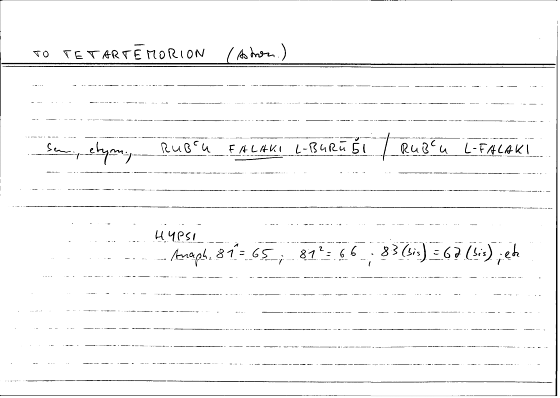 TO TETARTĒMORION (Astron.)
Sem., etym., RUBᶜU FALAKI L-BURŪǦI / RUBᶜU L-FALAKI
HYPSI
Anaph. 81¹ = 65 ; 81² = 66 ; 83 (bis) = 67 (bis) ; etc